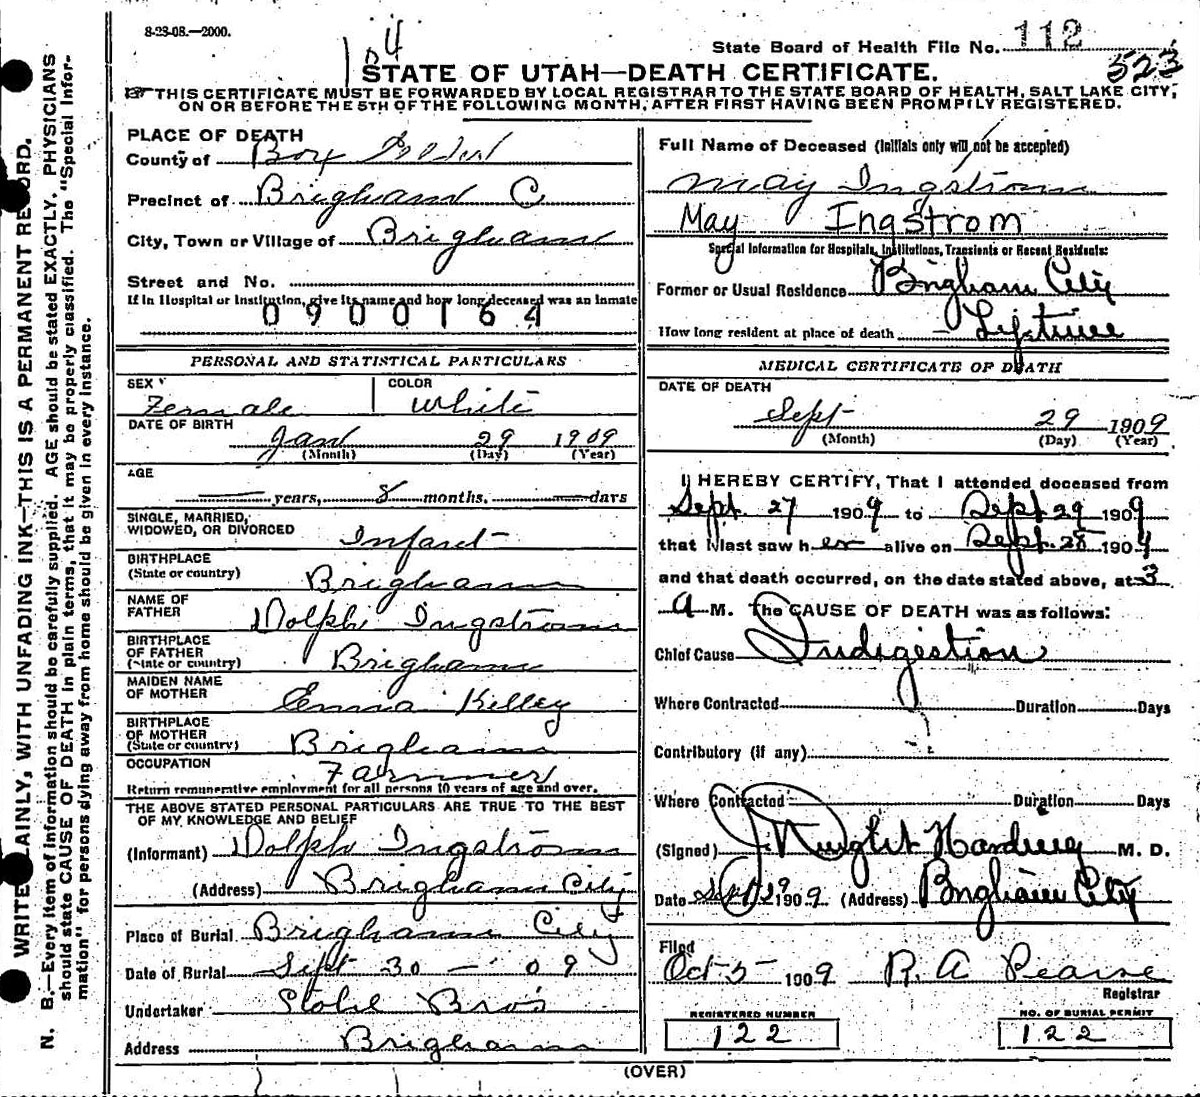 8-23-08.—2000.
104
State Board of Health File No. 112
523
STATE OF UTAH—DEATH CERTIFICATE.
THIS CERTIFICATE MUST BE FORWARDED BY LOCAL REGISTRAR TO THE STATE BOARD OF HEALTH, SALT LAKE CITY,
ON OR BEFORE THE 5TH OF THE FOLLOWING MONTH, AFTER FIRST HAVING BEEN PROMPTLY REGISTERED.
WRITE PLAINLY, WITH UNFADING INK—THIS IS A PERMANENT RECORD.
N. B.—Every item of information should be carefully supplied. AGE should be stated EXACTLY. PHYSICIANS
should state CAUSE OF DEATH in plain terms, that it may be properly classified. The "Special Infor-
mation" for persons dying away from home should be given in every instance.
PLACE OF DEATH
County of Box Elder
Precinct of Brigham C
City, Town or Village of Brigham
Street and No.
If in Hospital or Institution, give its name and how long deceased was an inmate
0900164
PERSONAL AND STATISTICAL PARTICULARS
SEX Female
COLOR White
DATE OF BIRTH
Jan 29 1909
(Month) (Day) (Year)
AGE
— years, 8 months, — days
SINGLE, MARRIED,
WIDOWED, OR DIVORCED Infant
BIRTHPLACE
(State or country) Brigham
NAME OF
FATHER Dolph Ingstrom
BIRTHPLACE
OF FATHER
(State or country) Brigham
MAIDEN NAME
OF MOTHER Emma Kelley
BIRTHPLACE
OF MOTHER
(State or country) Brigham
OCCUPATION Farmer
Return remunerative employment for all persons 10 years of age and over.
THE ABOVE STATED PERSONAL PARTICULARS ARE TRUE TO THE BEST
OF MY KNOWLEDGE AND BELIEF
(Informant) Dolph Ingstrom
(Address) Brigham City
Place of Burial Brigham City
Date of Burial Sept 30 — 09
Undertaker Stohl Bros
Address Brigham
Full Name of Deceased (Initials only will not be accepted)
May Ingstrom
May Ingstrom
Special Information for Hospitals, Institutions, Transients or Recent Residents:
Former or Usual Residence Brigham City
How long resident at place of death — Lifetime
MEDICAL CERTIFICATE OF DEATH
DATE OF DEATH
Sept 29 1909
(Month) (Day) (Year)
I HEREBY CERTIFY, That I attended deceased from
Sept. 27 1909 to Sept. 29 1909
that I last saw her alive on Sept. 28 1909
and that death occurred, on the date stated above, at 3
A M. The CAUSE OF DEATH was as follows:
Chief Cause Indigestion
Where Contracted Duration Days
Contributory (if any)
Where Contracted Duration Days
(Signed) Harding M. D.
Date Sept 29 1909 (Address) Brigham City
Filed
Oct 5 1909 R. A Pearse
Registrar
REGISTERED NUMBER
122
NO. OF BURIAL PERMIT
122
(OVER)